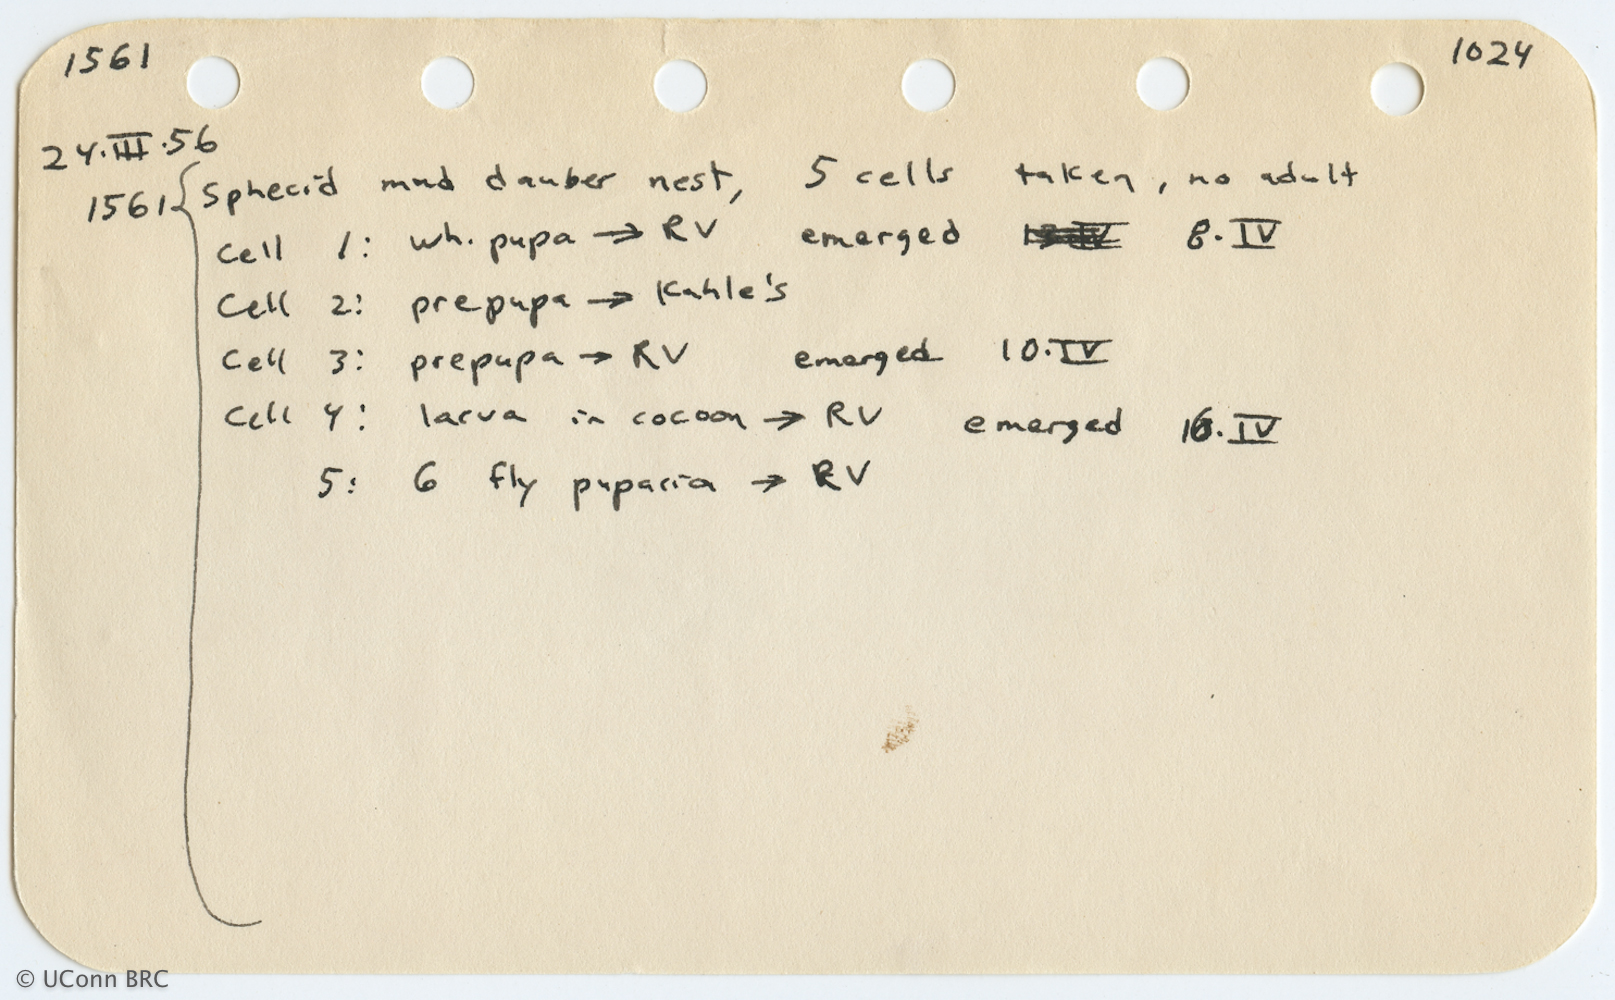 1561 1024
24.III.56
1561 Sphecid mud dauber nest, 5 cells taken, no adult
Cell 1: wh. pupa → RV emerged 8.IV
Cell 2: prepupa → Kahle's
Cell 3: prepupa → RV emerged 10.IV
Cell 4: larva in cocoon → RV emerged 16.IV
5: 6 fly puparia → RV
© UConn BRC